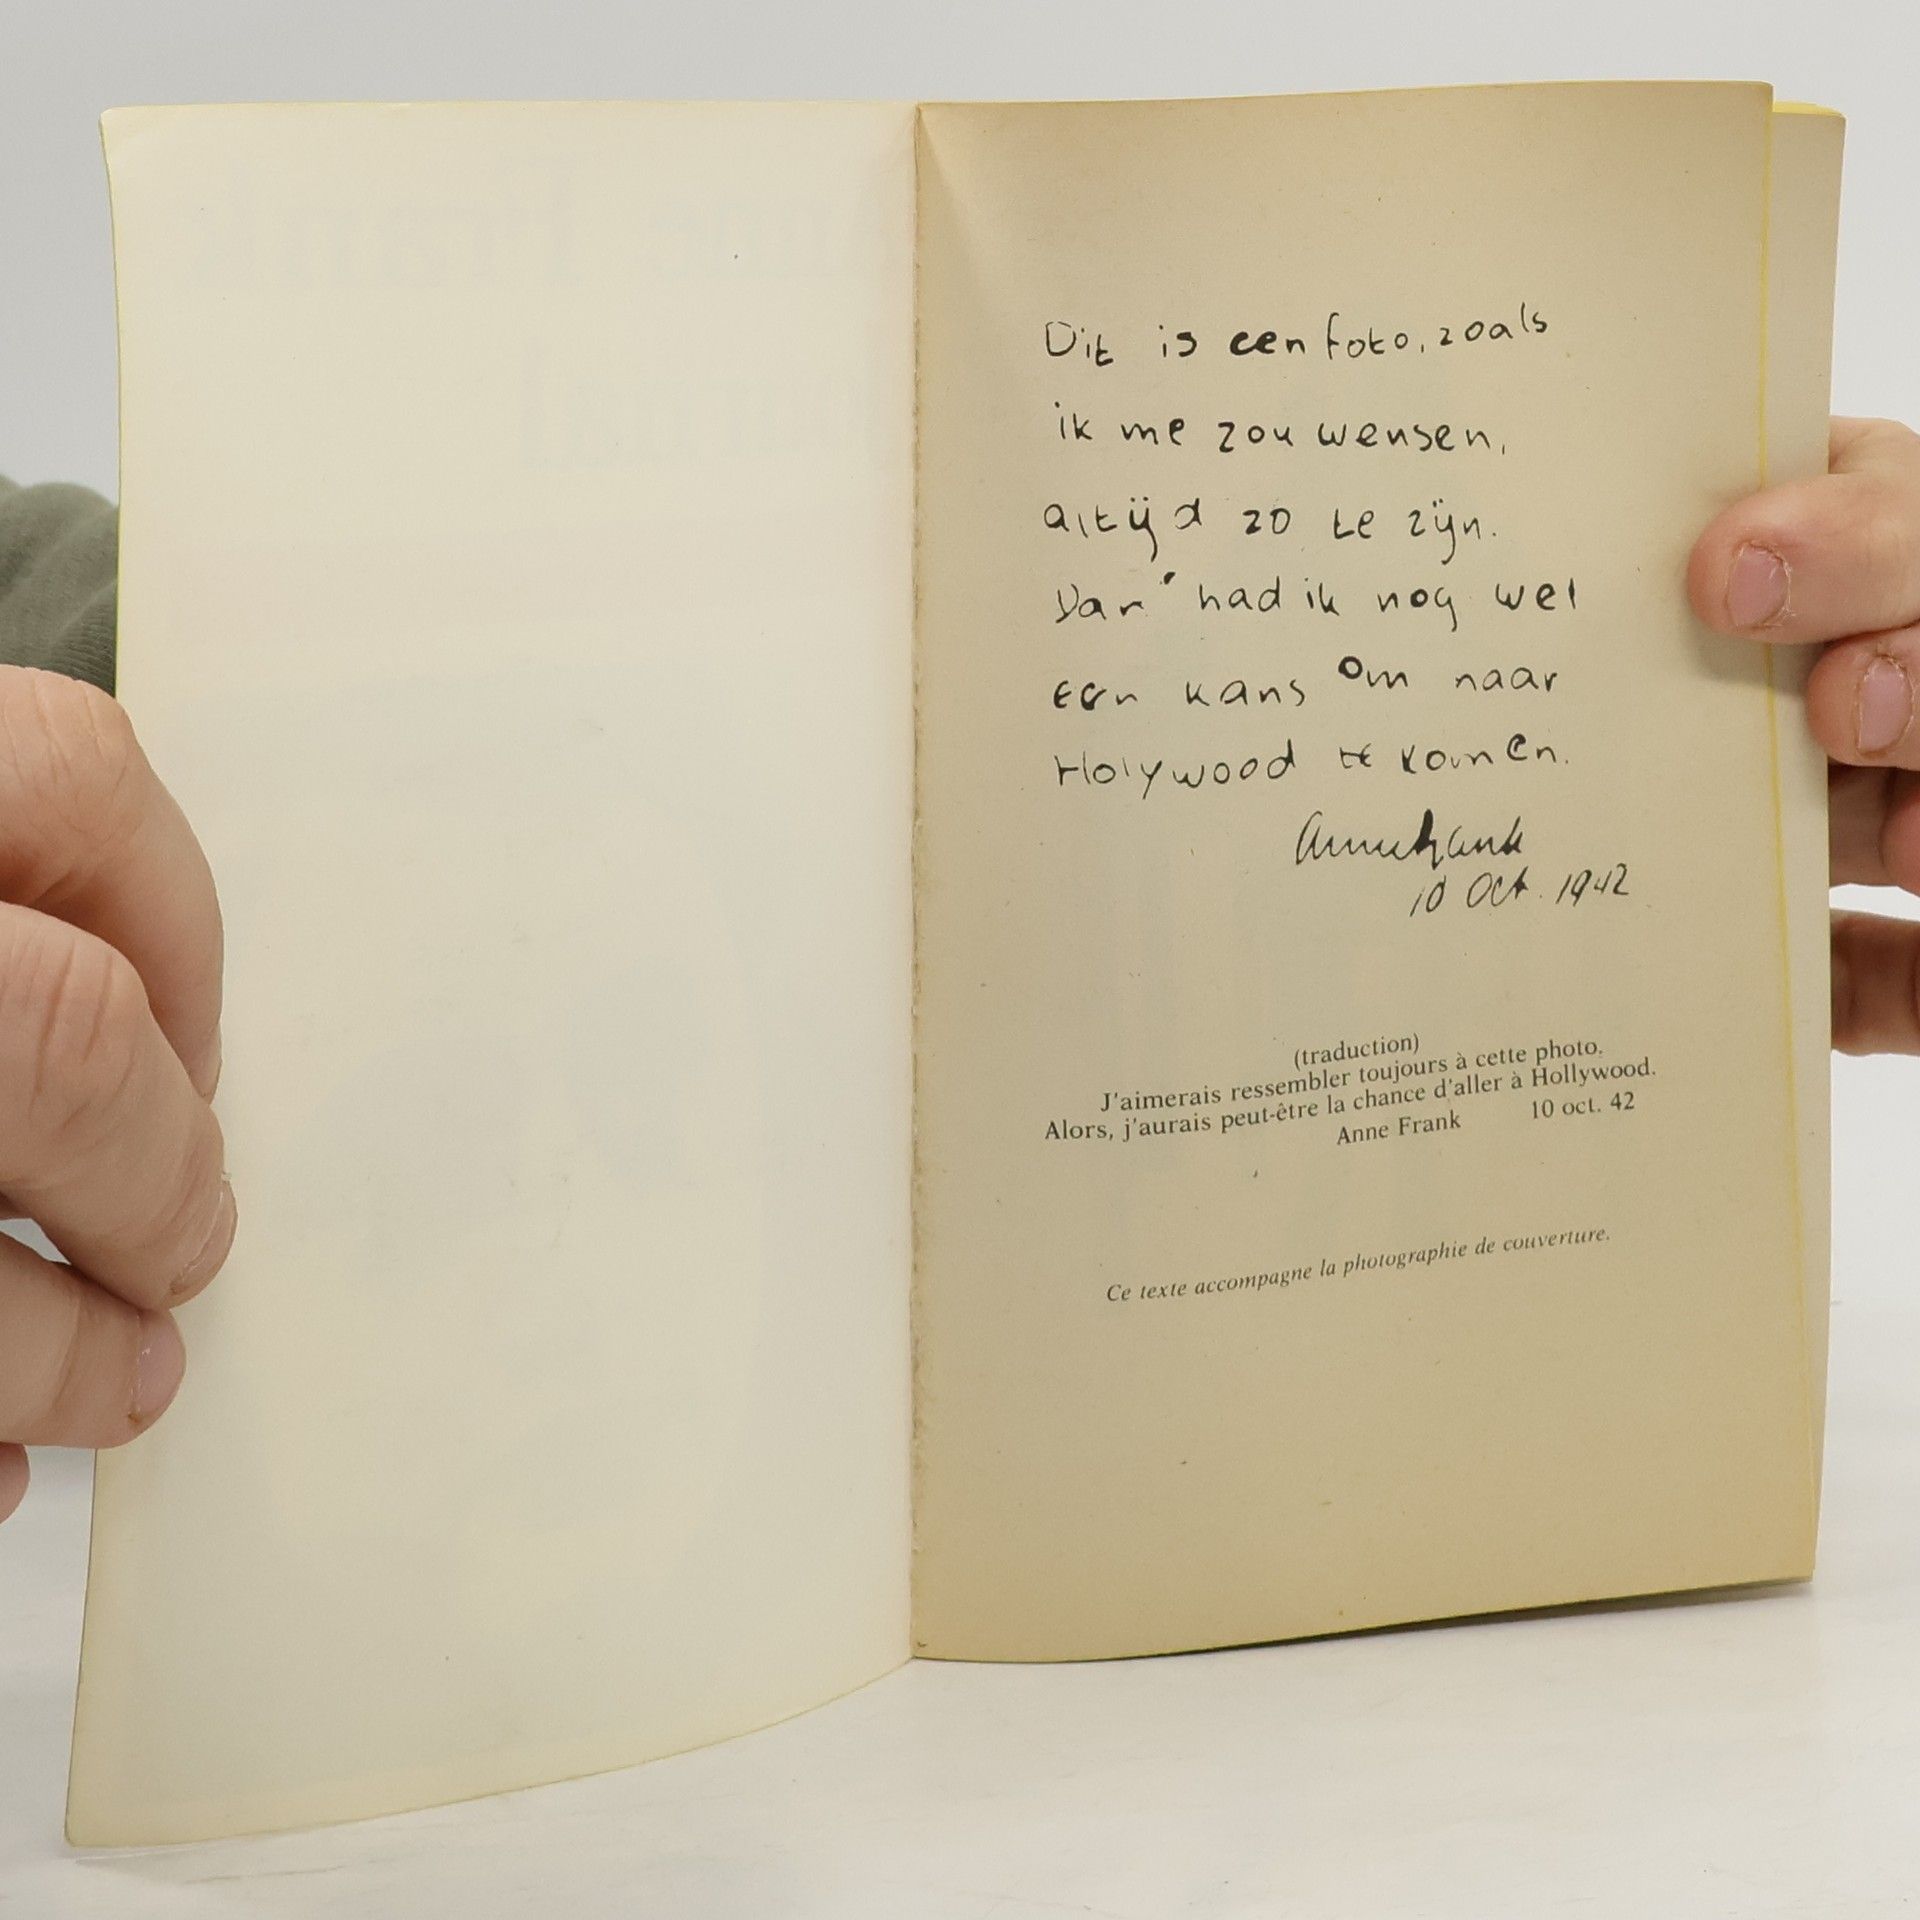 Dit is een foto, zoals
ik me zou wensen,
altijd zo te zijn.
Dan had ik nog wel
een kans om naar
Holywood te komen.
Anne Frank
10 Oct. 1942
(traduction)
J'aimerais ressembler toujours à cette photo.
Alors, j'aurais peut-être la chance d'aller à Hollywood.
Anne Frank 10 oct. 42
Ce texte accompagne la photographie de couverture.